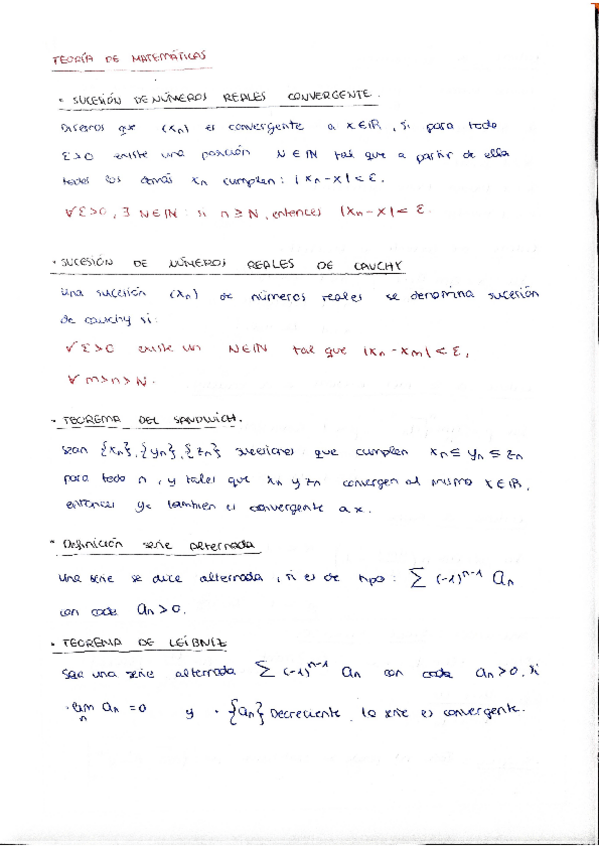 TEORÍA DE MATEMÁTICAS
· SUCESIÓN DE NÚMEROS REALES CONVERGENTE.
Diremos que (xn) es convergente a x∈ℝ, si para todo
ε>0 existe una posición N∈ℕ tal que a partir de ella
todos los demás xn cumplen: |xn-x|<ε.
∀ε>0, ∃ N∈ℕ: si n≥N, entonces |xn-x|<ε.
· SUCESIÓN DE NÚMEROS REALES DE CAUCHY
Una sucesión (xn) de números reales se denomina sucesión
de cauchy si:
∀ε>0 existe un N∈ℕ tal que |xn-xm|<ε,
∀ m>n>N.
· TEOREMA DEL SANDWICH.
sean {xn},{yn},{zn} sucesiones que cumplen xn≤yn≤zn
para todo n, y tales que xn y zn convergen al mismo x∈ℝ,
entonces yn también es convergente a x.
· Definición serie alternada
Una serie se dice alternada, si es de tipo: ∑ (-1)^(n-1) an
con cada an>0.
· TEOREMA DE LEIBNIZ
Sea una serie alternada ∑ (-1)^(n-1) an con cada an>0, si
· lim n an =0 y · {an} Decreciente, la serie es convergente.